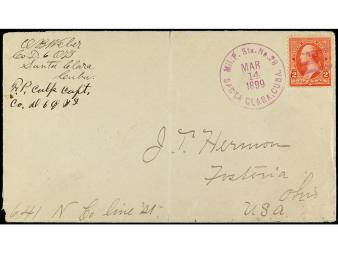 O B Weber
Co D 6 O V I
Santa Clara
Cuba.
R. P. Culp Capt,
Co. M 6 O V I
MIL. P. Sta. No. 28
MAR
14
1899
SANTA CLARA, CUBA.
2 2
J. T. Hermon
Fostoria
Ohio
U.S.A.
641 N Co line St.